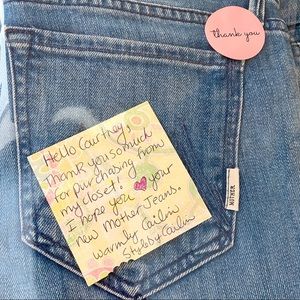 thank you
Hello Courtney,
Thank you so much
for purchasing from
my closet!
I hope you ❤ your
new Mother Jeans.
warmly Cailin
Style by Cailin
MOTHER